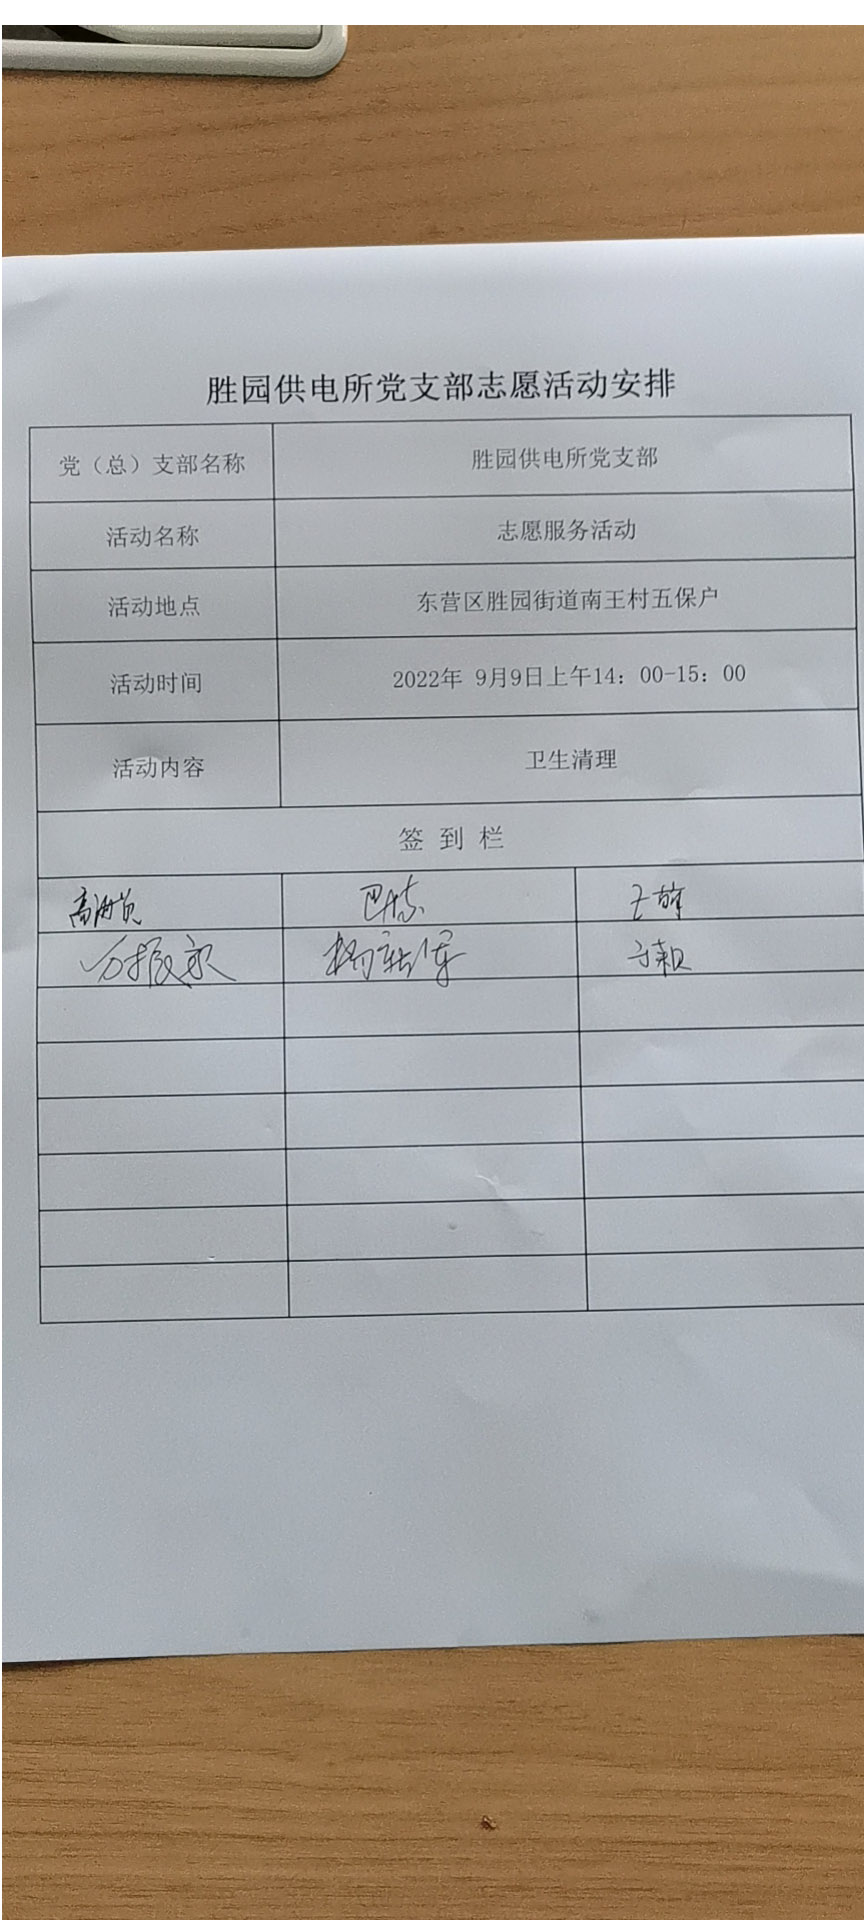 胜园供电所党支部志愿活动安排
党（总）支部名称 胜园供电所党支部
活动名称 志愿服务活动
活动地点 东营区胜园街道南王村五保户
活动时间 2022年 9月9日上午14：00-15：00
活动内容 卫生清理
签 到 栏